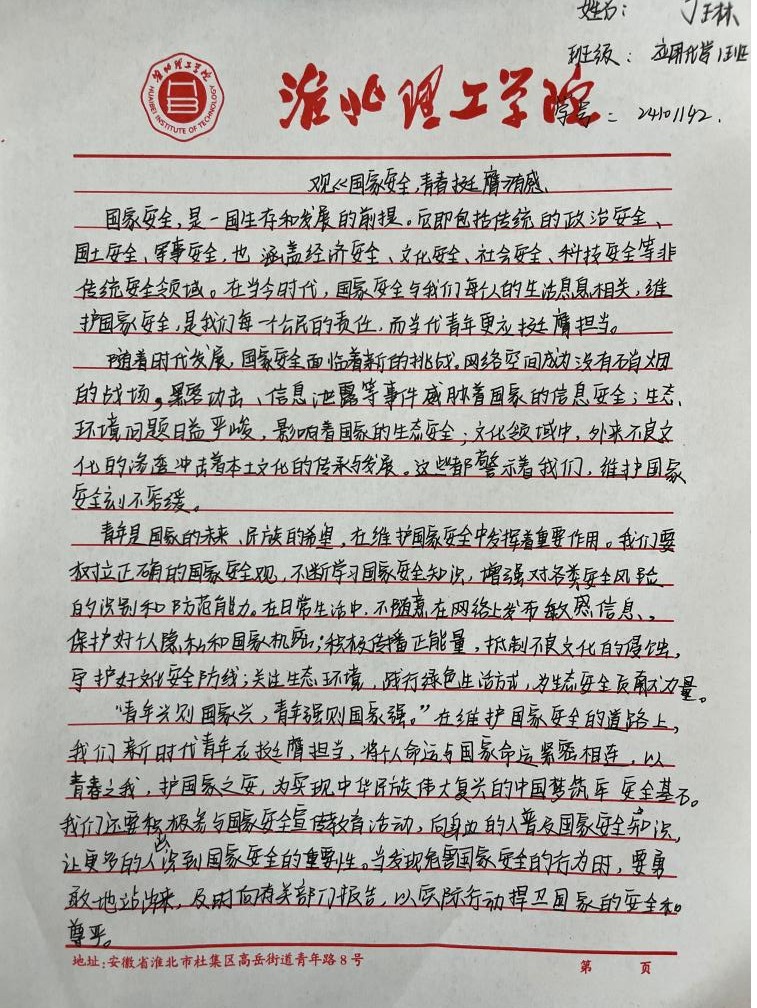 姓名：丁玉林
班级：应用化学1班
淮北理工学院
HUAIBEI INSTITUTE OF TECHNOLOGY
学号：24101142.
观《国家安全,青春挺膺》有感、
国家安全,是一国生存和发展的前提。它即包括传统的政治安全、
国土安全、军事安全,也涵盖经济安全、文化安全、社会安全、科技安全等非
传统安全领域。在当今时代,国家安全与我们每个人的生活息息相关,维
护国家安全,是我们每一个公民的责任,而当代青年更应挺膺担当。
随着时代发展,国家安全面临着新的挑战。网络空间成为没有硝烟
的战场,黑客攻击、信息泄露等事件威胁着国家的信息安全；生态、
环境问题日益严峻,影响着国家的生态安全；文化领域中,外来不良文
化的渗透冲击着本土文化的传承与发展。这些都警示着我们,维护国家
安全刻不容缓。
青年是国家的未来、民族的希望,在维护国家安全中发挥着重要作用。我们要
树立正确的国家安全观,不断学习国家安全知识,增强对各类安全风险
的识别和防范能力,在日常生活中,不随意在网络上发布敏感信息、,
保护好个人隐私和国家机密；积极传播正能量,抵制不良文化的侵蚀,
守护好文化安全防线；关注生态环境,践行绿色生活方式,为生态安全贡献力量。
“青年兴则国家兴,青年强则国家强。”在维护国家安全的道路上,
我们新时代青年应挺膺担当,将个人命运与国家命运紧密相连,以
青春之我,护国家之安,为实现中华民族伟大复兴的中国梦筑牢安全基石。
我们还要积极参与国家安全宣传教育活动,向身边的人普及国家安全知识,
让更多的人认识到国家安全的重要性。当发现危害国家安全的行为时,要勇
敢地站出来,及时向有关部门报告,以实际行动捍卫国家的安全和
尊严。
地址:安徽省淮北市杜集区高岳街道青年路8号
第 页